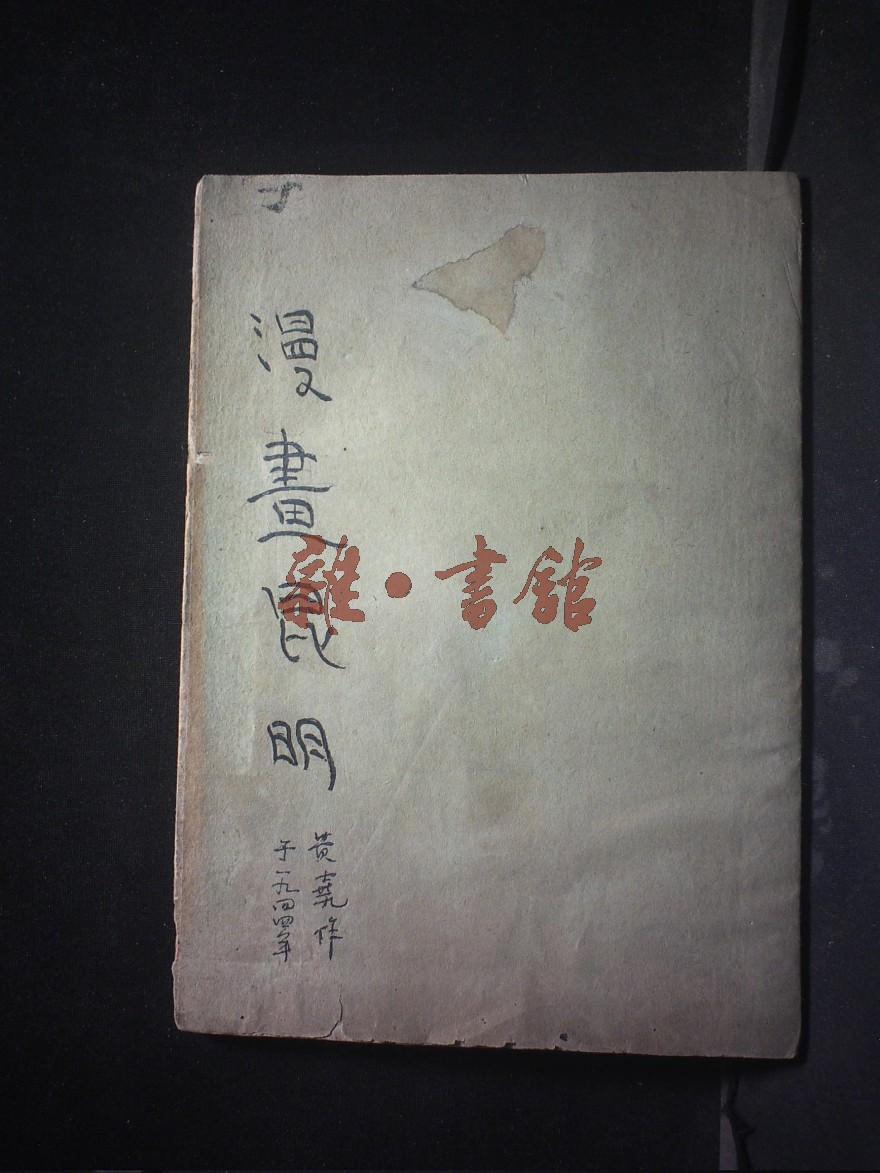 漫畫昆明
黃堯作
于一九四四年
雜·書館